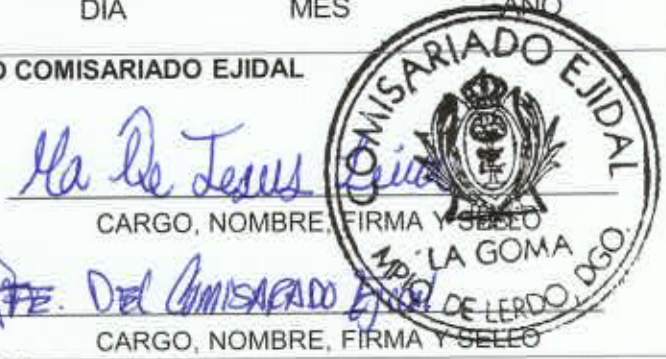 DIA MES AÑO
O COMISARIADO EJIDAL
Ma De Jesus
CARGO, NOMBRE, FIRMA Y SELLO
PTE. Del Comisariado Ejidal
CARGO, NOMBRE, FIRMA Y SELLO
COMISARIADO EJIDAL
LA GOMA
MPIO. DE LERDO, DGO.